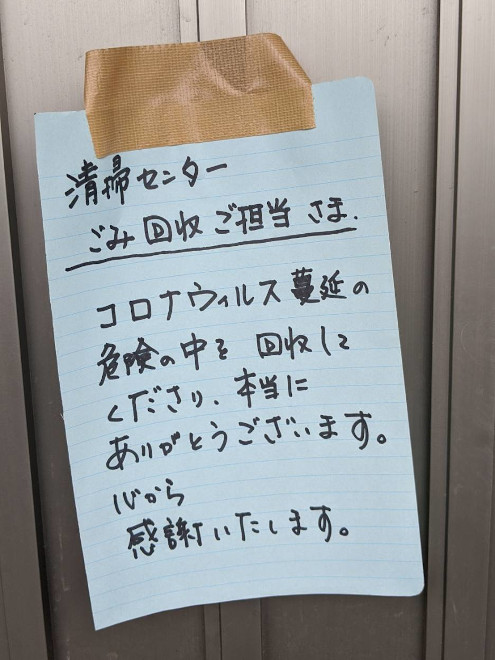 清掃センター
ごみ回収ご担当さま.
コロナウィルス蔓延の
危険の中を 回収して
くださり、本当に
ありがとうございます。
心から
感謝いたします。